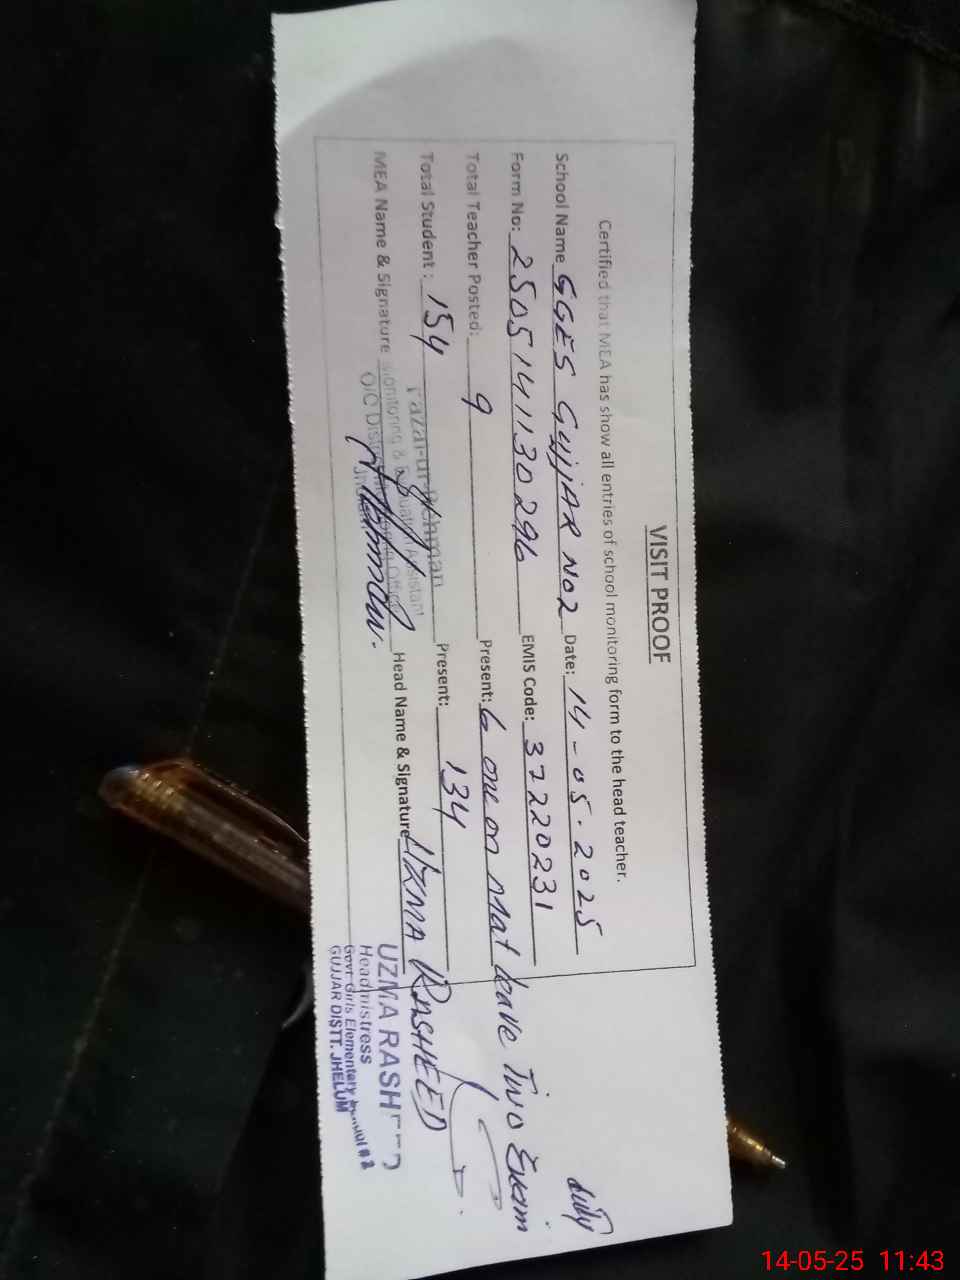 VISIT PROOF
Certified that MEA has show all entries of school monitoring form to the head teacher.
School Name GGES GUjjAR No2 Date: 14-05-2025
Form No: 2505141130296 EMIS Code: 37220231
Total Teacher Posted: 9 Present: 6 one on Mat leave Two Exam duty
Total Student: 154 Present: 134
MEA Name & Signature Head Name & Signature UZMA RASHEED
Monitoring & Evaluation Assistant
UZMA RASHEED
Headmistress
Govt Girls Elementary School # 2
GUJJAR DISTT. JHELUM
14-05-25 11:43